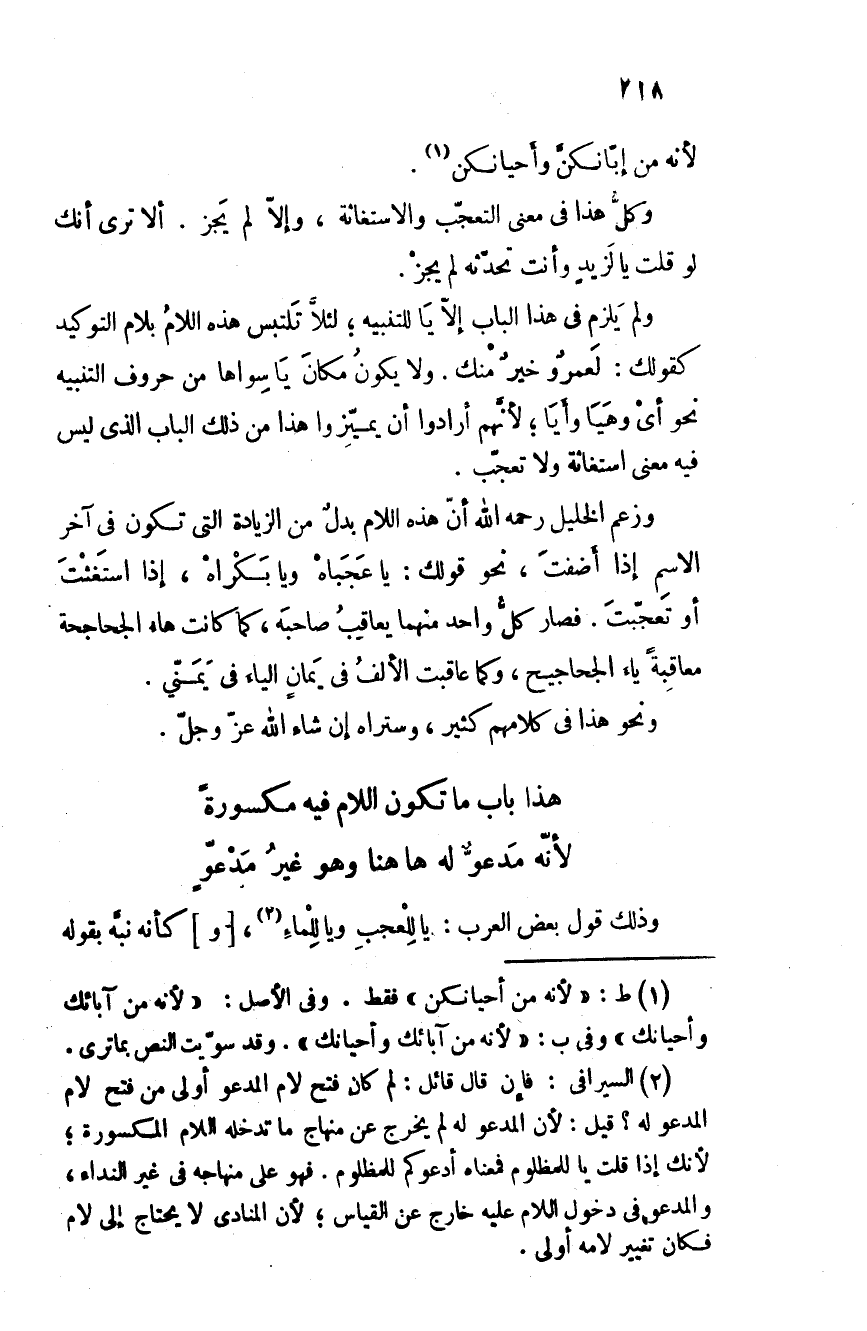 ٢١٨
لأنه من إبّانكنَّ وأحيانكن(١) .
وكلُّ هذا فى معنى التعجّب والاستغاثة ، وإلاّ لم يَجز . ألا ترى أنك
لو قلت يا لَزيدٍ وأنت تحدّثه لم يجزْ .
ولم يَلزم فى هذا الباب إلاّ يَا للتنبيه ؛ لئلاَّ تَلتبس هذه اللامُ بلام التوكيد
كقولك : لَعمرٌو خيرٌ منك . ولا يكونُ مكانَ يَا سِواها من حروف التنبيه
نحو أىْ وهَيَا وأَيَا ؛ لأنَّهم أرادوا أن يميّزوا هذا من ذلك الباب الذى ليس
فيه معنى استغاثة ولا تعجّب .
وزعم الخليل رحمه الله أنّ هذه اللام بدلٌ من الزيادة التى تكون فى آخر
الاسم إذا أَضفتَ ، نحو قولك : يا عَجَباهْ ويا بَكْراهْ ، إذا استَغثْتَ
أو تَعجّبتَ . فصار كلُّ واحد منهما يعاقِبُ صاحبَه ، كما كانت هاء الجحاجحة
معاقِبةً ياء الجحاجيح ، وكما عاقبت الألفُ فى يَمانٍ الياء فى يَمَنّي .
ونحو هذا فى كلامهم كثير ، وستراه إن شاء الله عزّ وجلّ .
هذا باب ما تكون اللام فيه مكسورةً
لأنّه مَدعوٌّ له ها هنا وهو غيرُ مَدْعوٍّ
وذلك قول بعض العرب : يا لِلْعجبِ ويا لِلْماءِ(٢) ، [و] كأنه نبَّه بقوله
(١) ط : « لأنه من أحيانكن » فقط . وفى الأصل : « لأنه من آبائك
وأحيانك » وفى ب : « لأنه من آبائك وأحيانك » . وقد سوّيت النص بما ترى .
(٢) السيرافى : فإن قال قائل : لم كان فتح لام المدعو أولى من فتح لام
المدعو له ؟ قيل : لأن المدعو له لم يخرج عن منهاج ما تدخله اللام المكسورة ؛
لأنك إذا قلت يا للمظلوم فمعناه أدعوكم للمظلوم . فهو على منهاجه فى غير النداء ،
والمدعو فى دخول اللام عليه خارج عن القياس ؛ لأن المنادى لا يحتاج إلى لام
فكان تغيير لامه أولى .